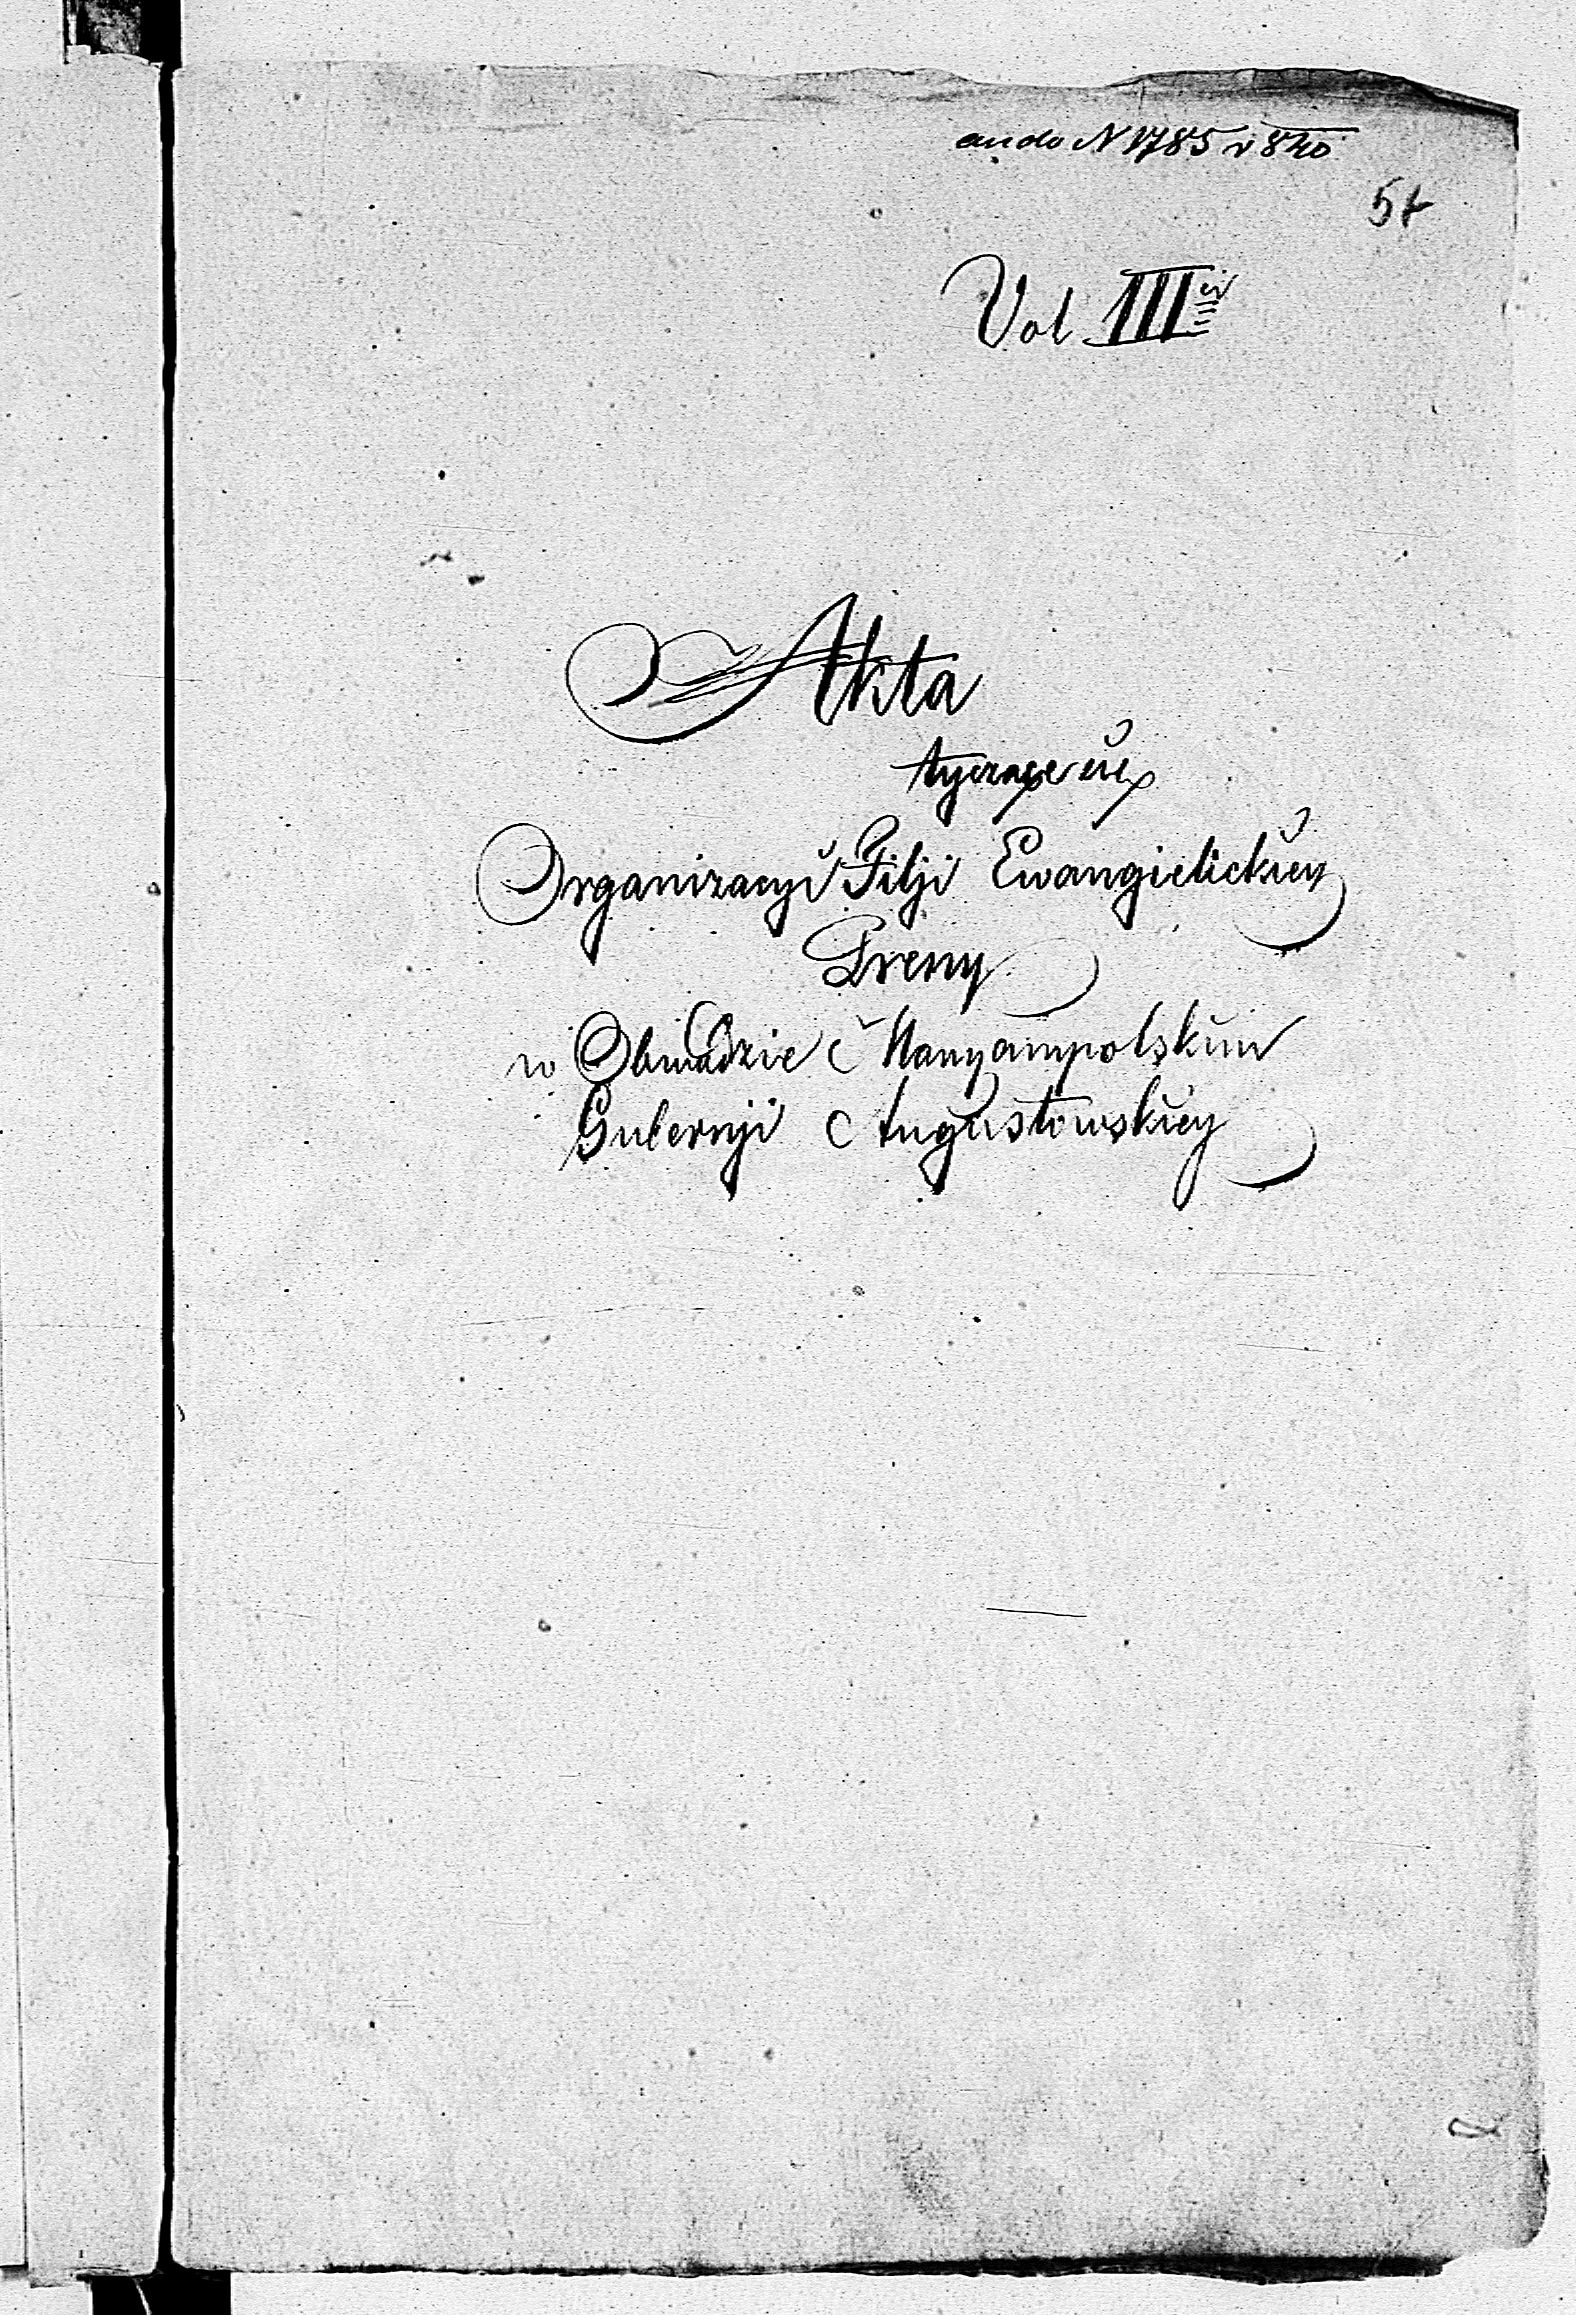 ando N 1785 r 840
57
Vol III
Akta
tyczące się
Organizacyi Filji Ewangielickiey
Preny
w Obwodzie Maryampolskim
Gubernji Augustowskiey